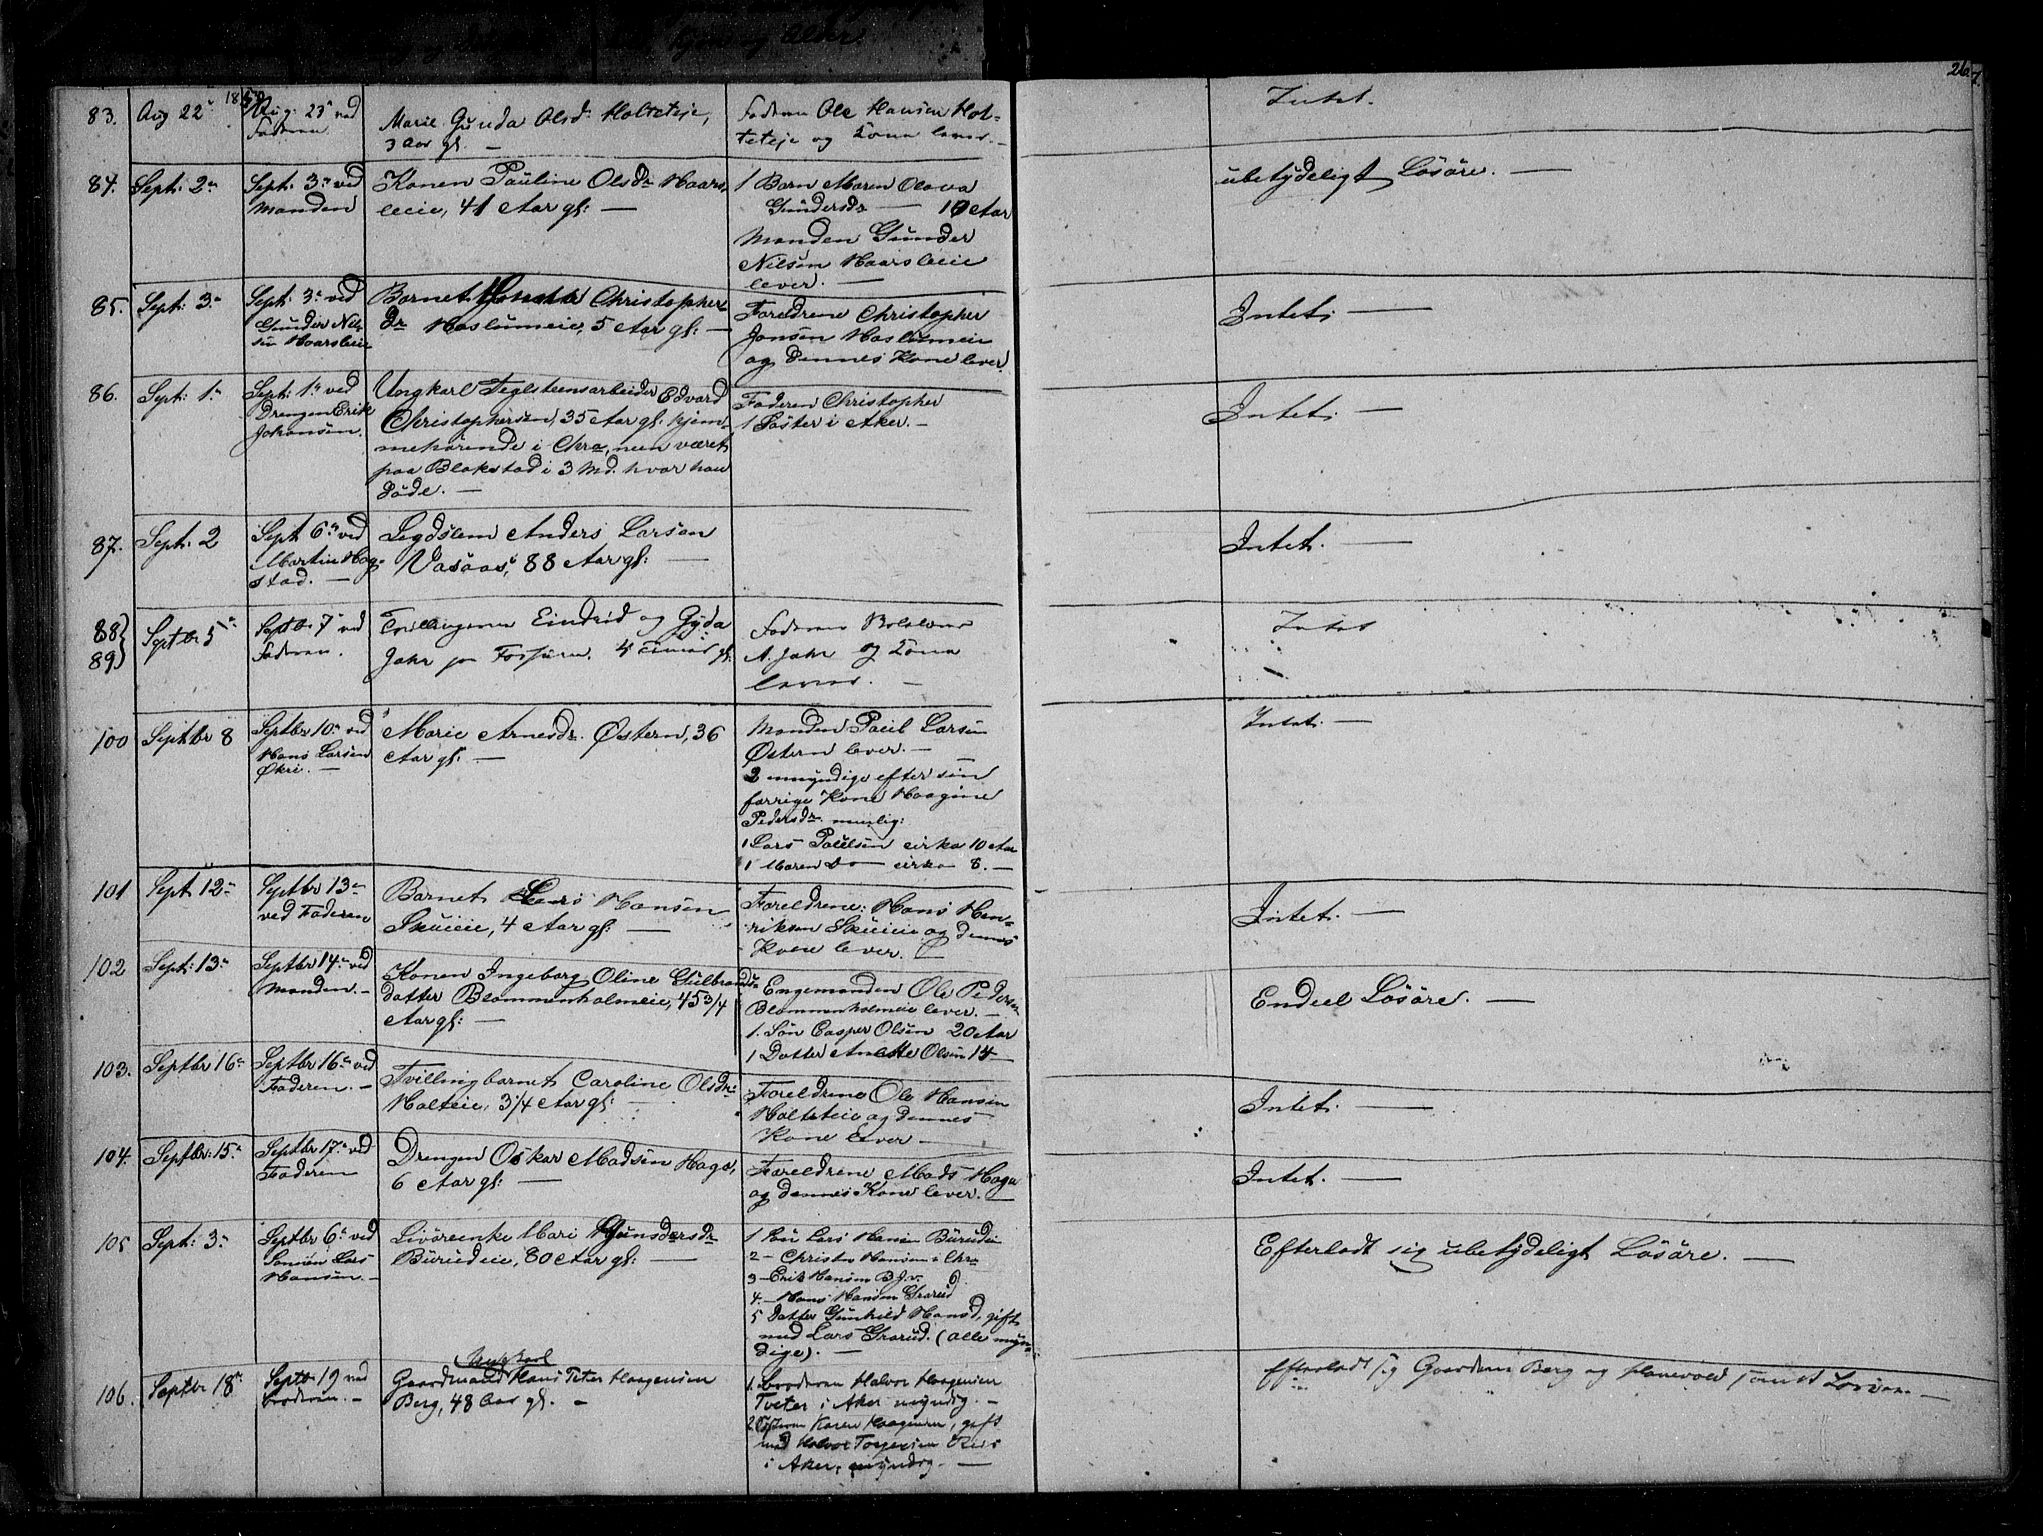 267
83. Aug 22de Aug: 23de ved Faderen Marie Gunda Olsd: Holteteje, 3 Aar gl. — Faderen Ole Hansen Hol-
teteje og Kone lever. — Intet.
84. Sept: 2den Sept: 3de ved Manden
Konen Pauline Olsdr Haars
leeie, 41 Aar gl: —
1 Barn Maren Olava
Gundersdr — 10 Aar
Manden Gunder
Nilsen Haarsleeie
lever. —
ubetydeligt Løsøre. —
85. Sept: 3de Sept: 3de ved
Gunder Nil-
sen Haarsleeie
Barnet Christopher
dr Haslumeie, 5 Aar gl: —
Foreldrene Christopher
Jonsen Haslumeie
og dennes Kone lever.
Intet. —
86. Sept: 1ste Sept: 1ste ved
Drengen Erik
Johansen.
Ungkarl Teglsteensarbeider Edvard
Christophersen, 35 Aar gl: hjem-
mehørende i Chra, men været
paa Blakstad i 3 Md. hvor han
døde. —
Faderen Christopher
1 Søster i Aker. —
Intet. —
87. Sept: 2 Sept 6te ved
Martin Hag-
stad. —
Legdslem Anders Larsen
Vasaas, 88 Aar gl: —
Intet. —
88}
89} Septbr 5te Septbr 7de ved
Faderen.
Tvillingerne Eindrid og Gyda
Jahr paa Fossum. 4 Timer gl:
Faderen
A. Jahr og Kone
lever. —
Intet
100 Septbr 8 Septbr 10de ved
Hans Larsen
Økri. —
Marie Arnesdr. Østern, 36
Aar gl: —
Manden Paul Larsen
Østern lever. —
2 umyndige efter sin
forrige Kone Haagine
Pedersdr. nemlig:
1 Lars Paulsen cirka 10 Aar
1 Maren Do — cirka 8. —
Intet. —
101 Sept 12te Septbr 13de
ved Faderen
Barnet Lars Hansen
Skuieie, 4 Aar gl: —
Foreldrene: Hans Hen-
riksen Skuieie og dennes
Kone lever.
Intet. —
102 Sept: 13de Septbr 14de ved
Manden. —
Konen Ingeborg Oline Gulbrands
datter Blommenholmeie, 45 3/4
Aar gl: —
Engemanden Ole Pedersen
Blommenholmeie lever. —
1. Søn Casper Olsen 20 Aar
1 Datter Anette Olsen 14 —
Endeel Løsøre. —
103. Septbr 16de Septbr 16de ved
Faderen. —
Tvillingbarnet Caroline Olsdr:
Holteie, 3 1/4 Aar gl: —
Foreldrene Ole Hansen
Holteteie og dennes
Kone lever —
Intet. —
104. Septbr: 15de Septbr 17de ved
Faderen
Drengen Oskar Madsen Haga,
6 Aar gl: —
Foreldrene Mads Haga
og dennes Kone lever. —
Intet. —
105 Sept: 3de Septbr 6te ved
Sønnen Lars
Hansen. —
Livøreenke Mari Gunsdersdr
Burudeie, 80 Aar gl: —
1 Søn Lars Hansen Burudeie
2 — Christen Hansen i Chra
3 — Erik Hansen
4. — Hans Hansen Grorud
5 Datter Gunhild Hansd, gift
med Lars Grorud. (alle myn-
dige). —
Efterladt sig ubetydeligt Løsøre. —
106. Septbr 18de Septbr 19 ved
Broderen. —
Ungkarl
Gaardmand Hans Peter Haagensen
Berg, 48 Aar gl. —
1. Broderen Halvor Haagensen
Tveter i Aker myndig. —
2 Søsteren Karen Haagensen, gift
med Halvor Torgersen
i Aker, myndig. —
Efterladt sig Gaardene Berg og samt Løsøre. —